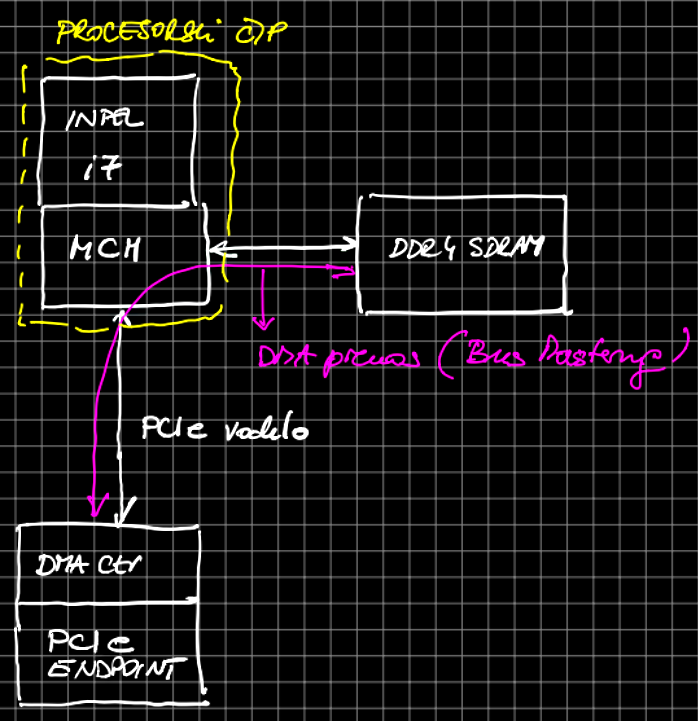 PROCESORSKI ČIP
INTEL
i7
MCH
DDR4 SDRAM
DMA prenos (Bus Mastering)
PCIe vodilo
DMA Ctr
PCIe
ENDPOINT